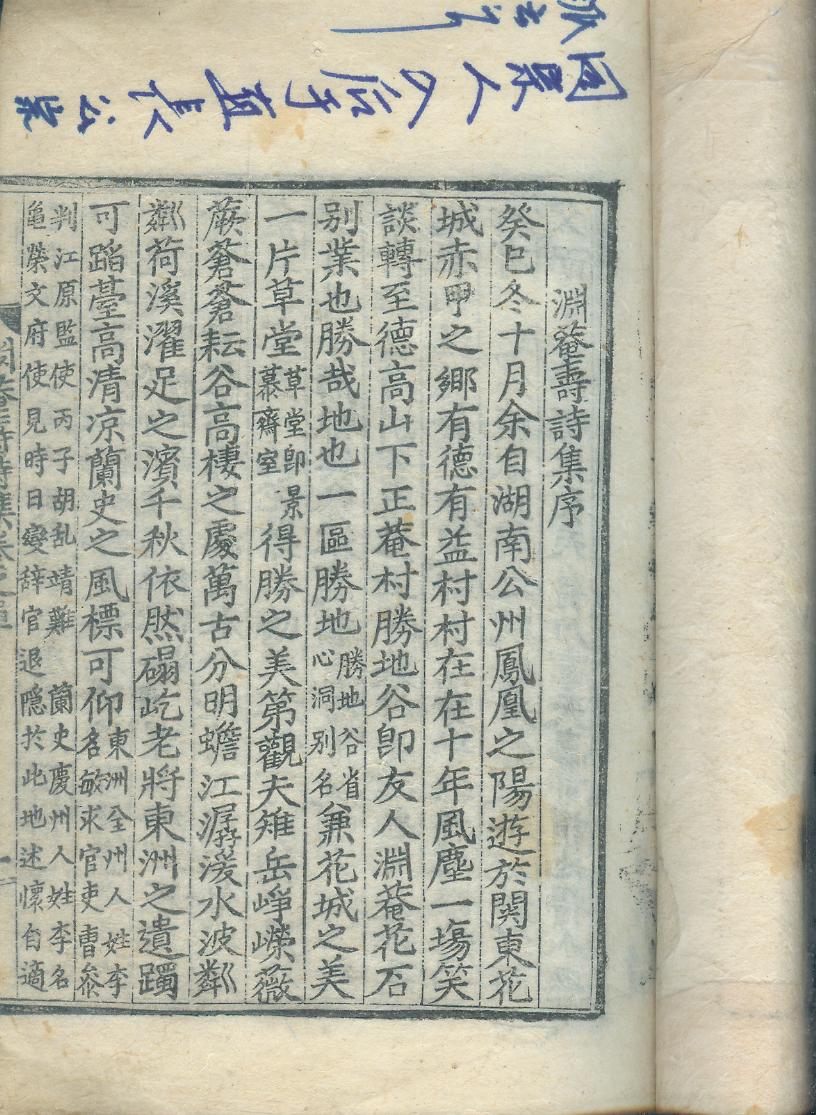 淵菴壽詩集序
癸巳冬十月余自湖南公州鳳凰之陽遊於関東花
城赤甲之鄉有德有益村村在在十年風塵一場笑
談轉至德高山下正菴村勝地谷卽友人淵菴花石
別業也勝哉地也一區勝地勝地谷省心洞別名兼花城之美
一片草堂草堂卽景慕齋室得勝之美第觀夫雉岳崢嶸薇
蕨蒼蒼耘谷高棲之處萬古分明蟾江潺湲水波粼
粼荷溪濯足之濱千秋依然磖屹老將東洲之遺躅
可蹈䑓高清凉蘭史之風標可仰東洲全州人姓李名敏求官吏曹參
判江原監使丙子胡乱靖難 蘭史慶州人姓李名
龜榮文府使見時日變辞官退隱於此地述懷自適